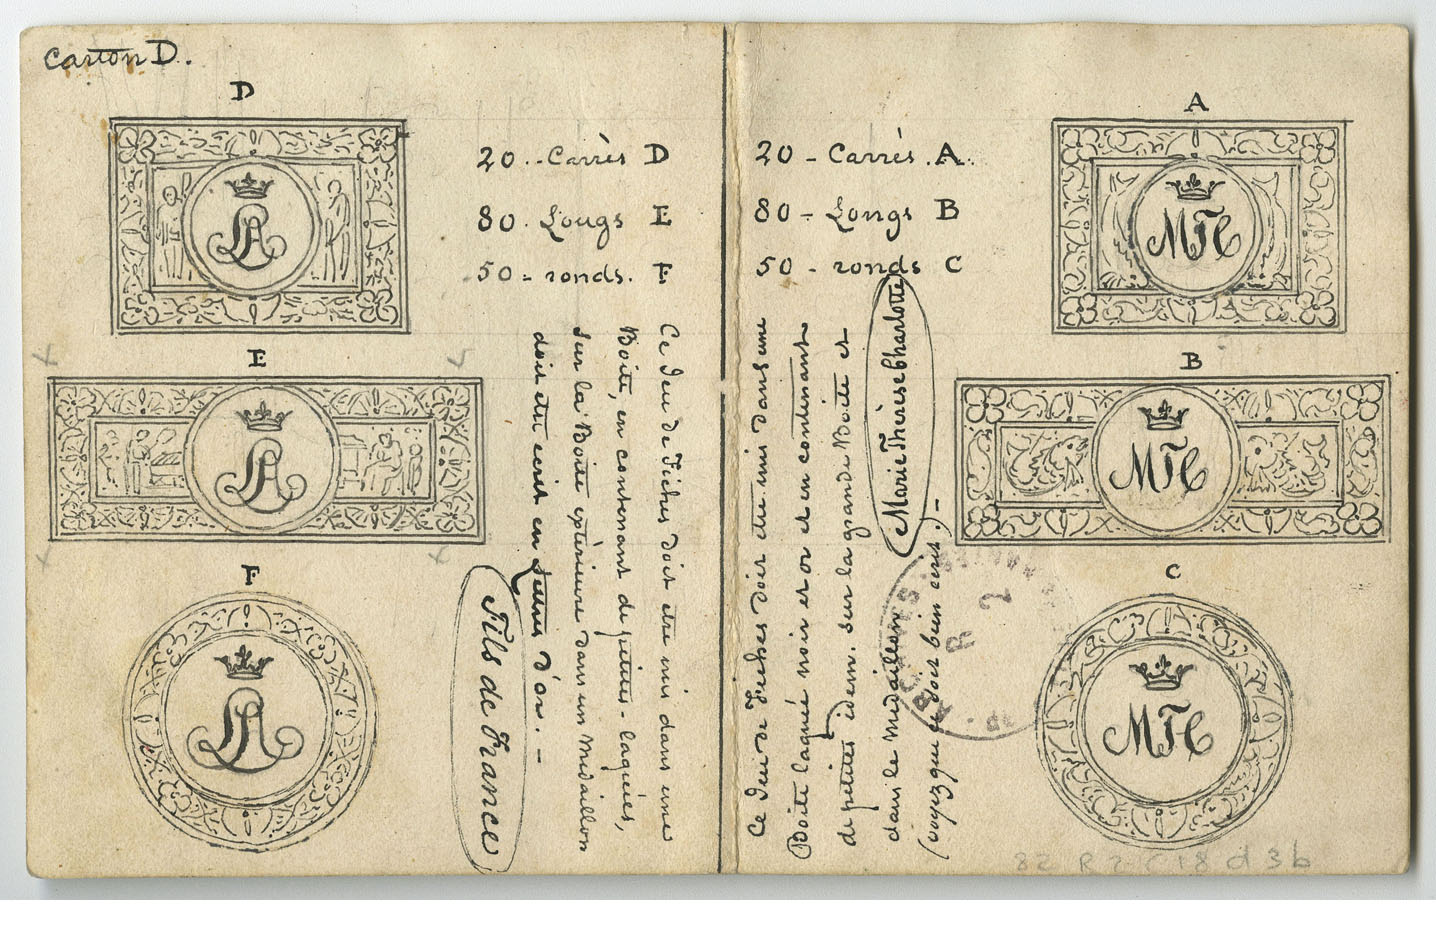 Carton D.
D
20 .. Carrès D
80 . Longs E
50 = ronds. F
E
F
Ce Jeu de Fiches doit etre mis dans une
Boite, en contenant de petites - laquées,
sur la Boite extèrieure dans un Medaillon
doit etre ecrit en Lettres d'or. -
Fils de France
LA
LA
LA
A
20 - Carrès. A.
80 - Longs B
50 - ronds C
B
C
Ce Jeu de Fiches doit etre mis dans une
Boite laquée noir et or et en contenant
de petites idem. sur la grande Boite et
dans le medaillon
Marie Thérèse Charlotte
(voyez que ce soit bien ecrit.) -
MTC
MTC
MTC
ARCHIVES
R 2
82 R 2 C 18 d 3b